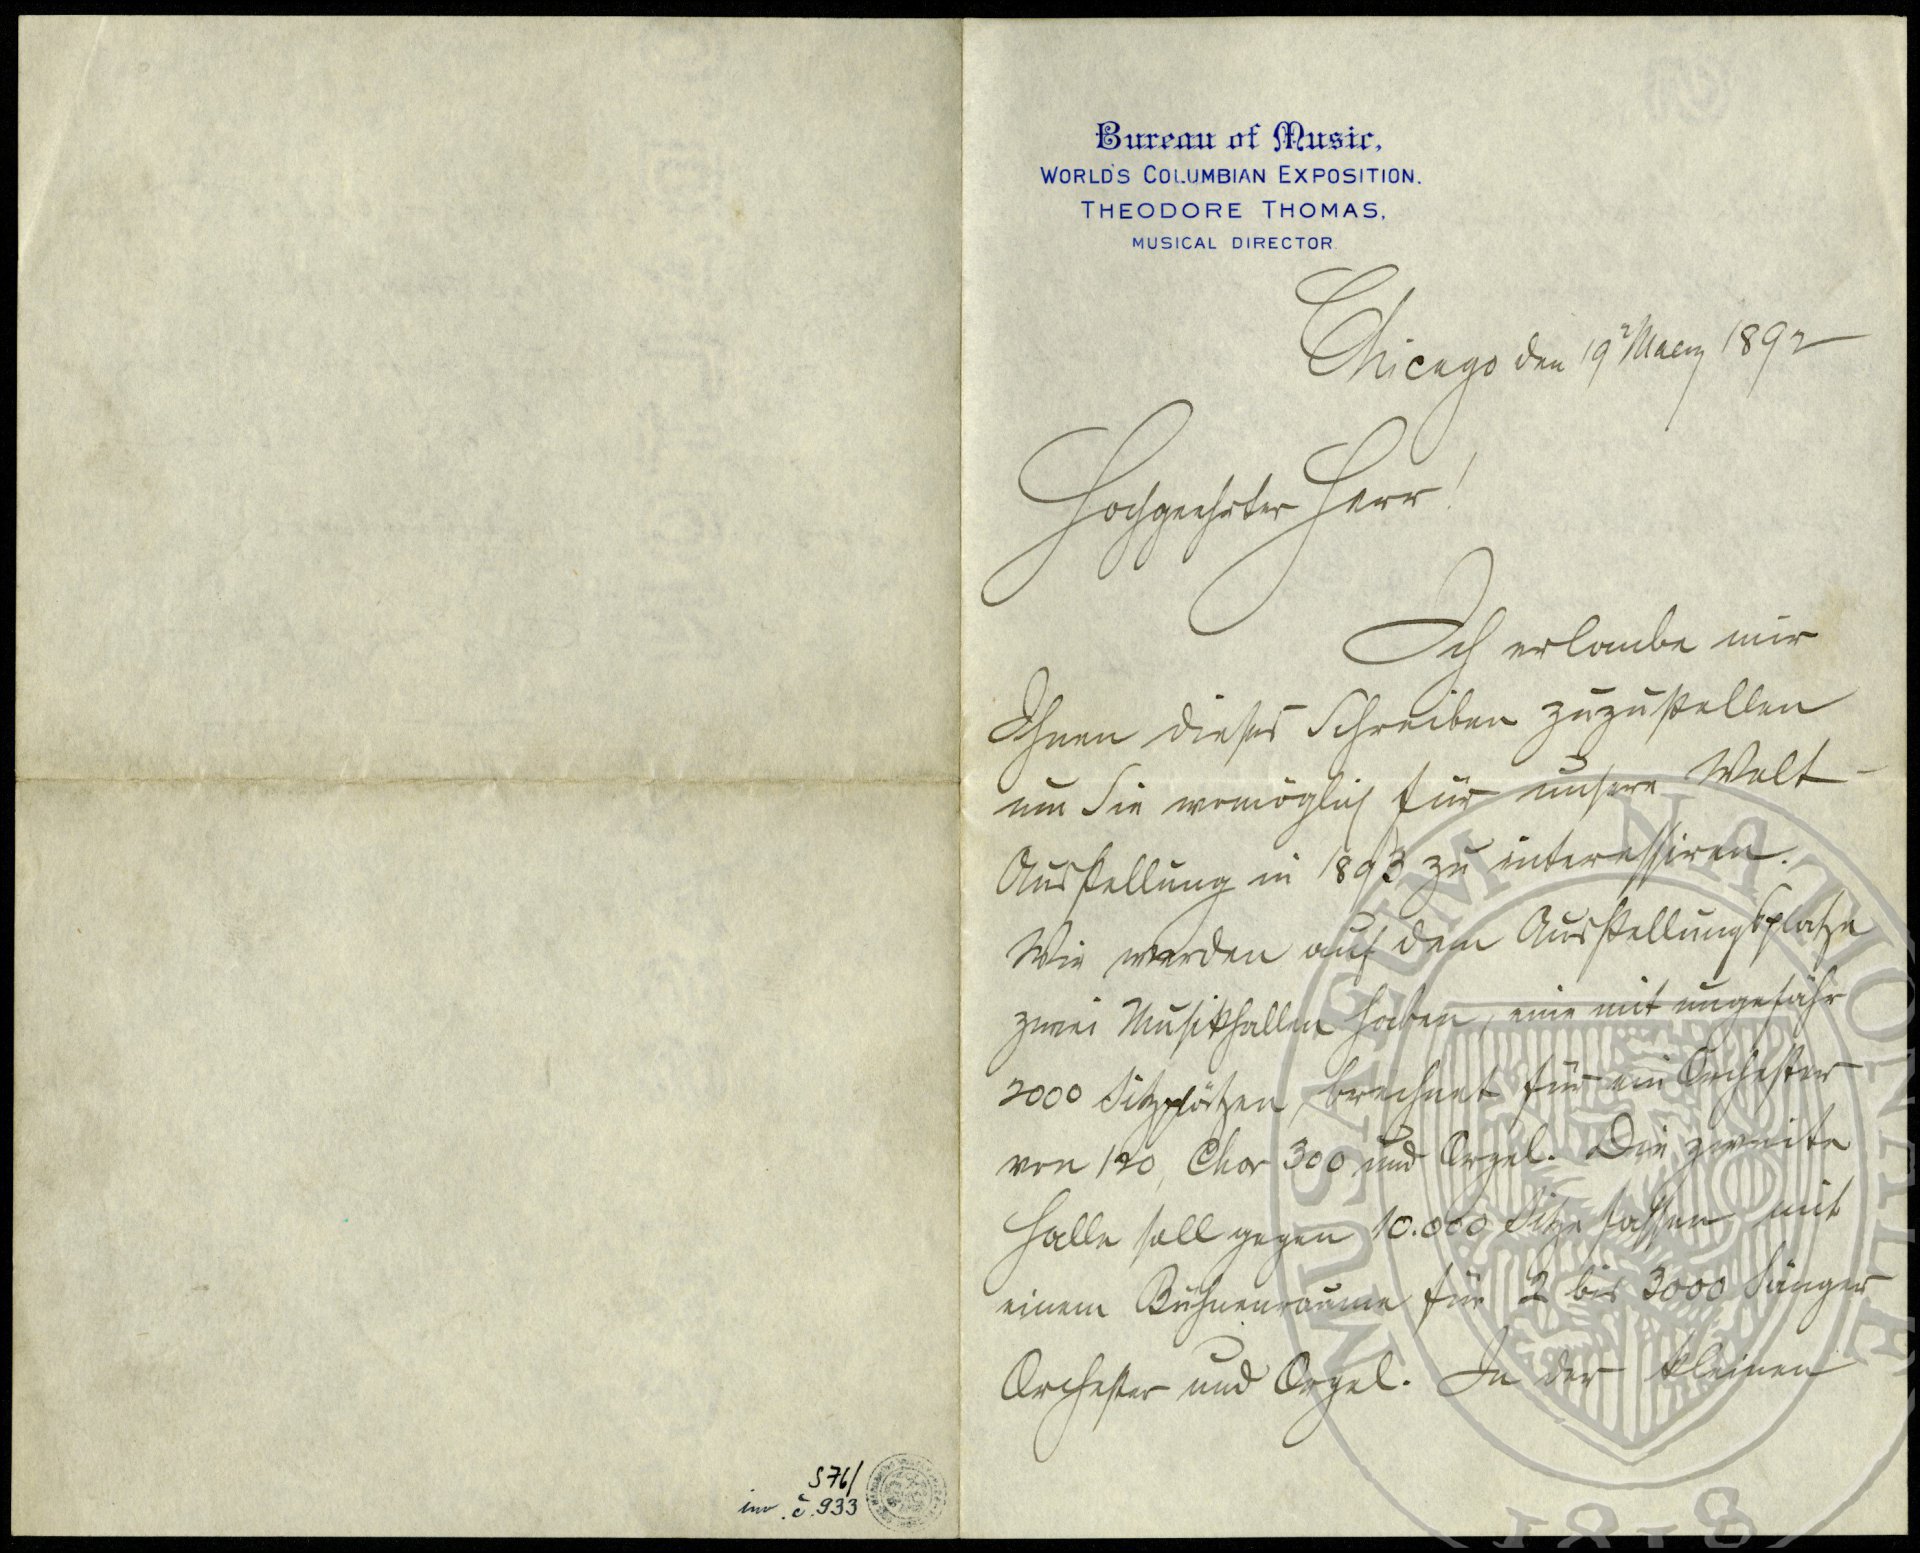 Bureau of Music,
WORLD'S COLUMBIAN EXPOSITION.
THEODORE THOMAS,
MUSICAL DIRECTOR.
Chicago den 19 Maerz 1892
Hochgeehrter Herr!
Ich erlaube mir
Ihnen dieses Schreiben zuzustellen
um Sie womöglich für unsere Welt-
Ausstellung in 1893 zu interessiren.
Wir werden auf dem Ausstellungsplatze
zwei Musikhallen haben, eine mit ungefähr
2000 Sitzplätzen, berechnet für ein Orchester
von 120, Chor 300 und Orgel. Die zweite
Halle soll gegen 10.000 Sitze fassen mit
einem Bühnenraume für 2 bis 3000 Sänger
Orchester und Orgel. In der kleinen
S 76/
inv. č. 933
MUSAEUM NATIONALE
1818